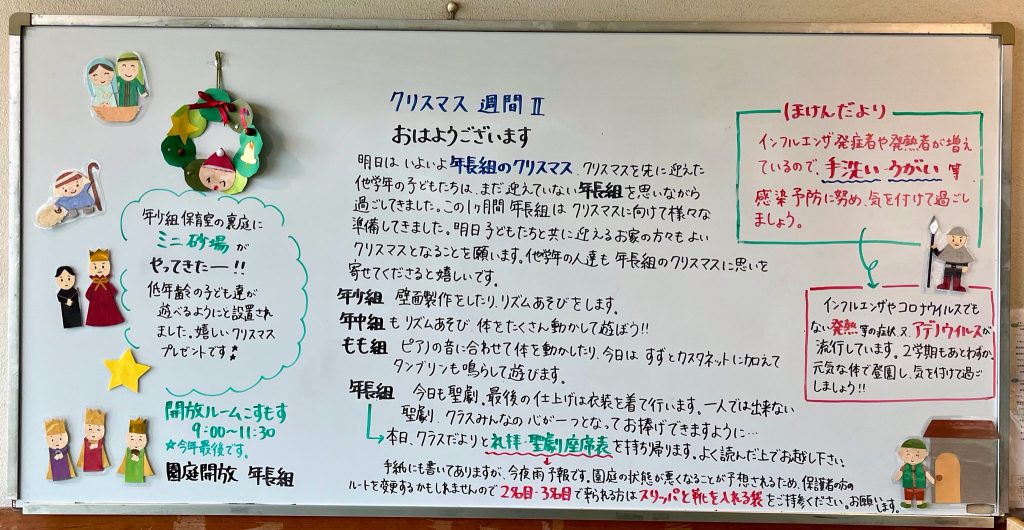 クリスマス 週間 Ⅱ
おはようございます
明日は いよいよ 年長組のクリスマス、クリスマスを先に迎えた
他学年の子どもたちは、まだ迎えていない年長組を思いながら
過ごしてきました。この1ヶ月間 年長組は クリスマスに向けて様々な
準備してきました。明日 子どもたちと共に迎えるお家の方々も よい
クリスマスとなることを願います。他学年の人達も 年長組のクリスマスに思いを
寄せてくださると嬉しいです。
年少組 壁面製作をしたり、リズムあそびをします。
年中組も リズムあそび、体をたくさん動かして遊ぼう!!
もも組 ピアノの音に合わせて体を動かしたり、今日は すずとカスタネットに加えて
タンブリンも鳴らして遊びます。
年長組 今日も聖劇、最後の仕上げは衣装を着て行います。一人では出来ない
聖劇、クラスみんなの 心が一つとなって お捧げできますように…
本日、クラスだよりと 礼拝・聖劇座席表 を持ち帰ります。よく読んだ上でお越し下さい。
手紙にも書いてありますが、今夜雨予報です。園庭の状態が悪くなることが予想されるため、保護者の方の
ルートを変更するかもしれませんので 2名目・3名目で来られる方は スリッパと靴を入れる袋をご持参ください。お願いします。
年少組 保育室の裏庭に
ミニ砂場が
やってきたー!!
低年齢の子ども達が
遊べるようにと設置され
ました。嬉しいクリスマス
プレゼントです
開放ルームこすもす
9:00〜11:30
☆今年最後です。
園庭開放 年長組
ほけんだより
インフルエンザ発症者や発熱者が増え
ているので、手洗い・うがい 等
感染予防に努め、気を付けて過ごし
ましょう。
インフルエンザやコロナウイルスでも
ない発熱等の症状又、アデノウイルスが
流行しています。2学期もあとわずか、
元気な体で登園し、気を付けて過ご
しましょう!!